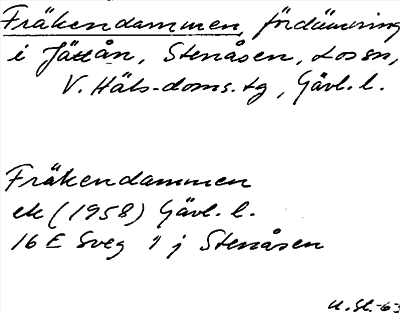 Fräkendammen, fördämning
i Jättån, Stenåsen, Los sn,
V. Häls. doms. tg, Gävl. l.
Fräkendammen
ek (1958) Gävl. l.
16 E Sveg 1 j Stenåsen